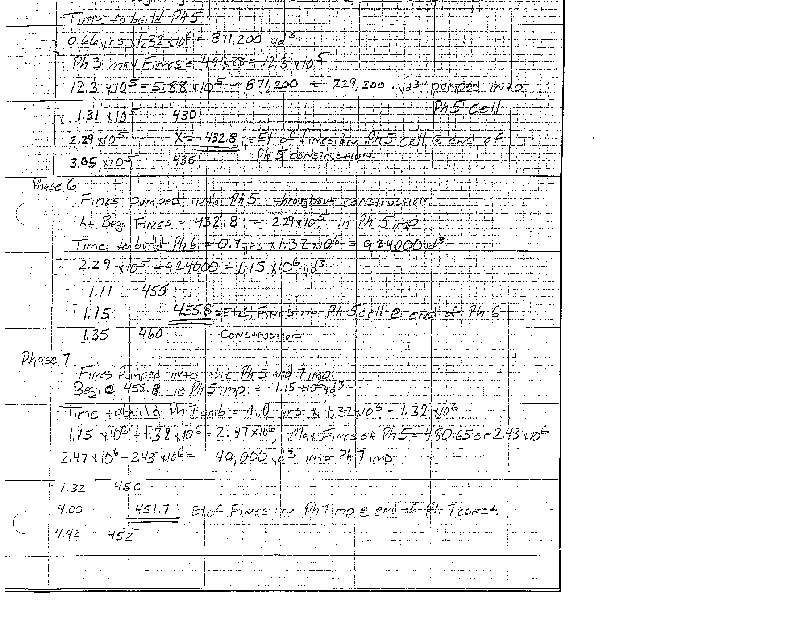 Time to build Ph 5
0.66 yrs x 1.32 x10⁶ = 871,200 yd³
Ph 3 max Fines = 498.8 = 12.3 x10⁵
12.3 x10⁵ - 5.88 x10⁵ - 871,200 = 229,200 yd³ pumped into
Ph 5 cell
1.31 x10⁵ 430
2.29 x10⁵ X = 432.8 = El of fines in Ph 5 cell @ end of
3.05 x10⁵ 435 Ph 5 construction
Phase 6
Fines pumped into Ph 5 throughout construction
ht Beg Fines = 432.8 = 2.29 x10⁵ in Ph 5 imp
Time to build Ph 6 = 0.7 yrs x 1.32 x10⁶ = 924000 yd³
2.29 x10⁵ + 924000 = 1.15 x10⁶ yd³
1.11 455
1.15 455.8 = El of Fines in Ph 5 cell @ end of Ph 6
1.35 460 Construction
Phase 7
Fines Pumped into Ph 5 and 7 imp.
Beg @ 455.8 in Ph 5 imp. = 1.15 x10⁶ yd³
Time to build Ph 7 emb = 1.0 yrs x 1.32 x10⁶ = 1.32 x10⁶
1.15 x10⁶ + 1.32 x10⁶ = 2.47 x10⁶, Max Fines at Ph 5 = 480.65 or 2.43 x10⁶
2.47 x10⁶ - 2.43 x10⁶ = 40,000 yd³ in Ph 7 imp
1.32 450
4.00 451.7 El of Fines in Ph 7 imp @ end of Ph 7 const.
4.42 452